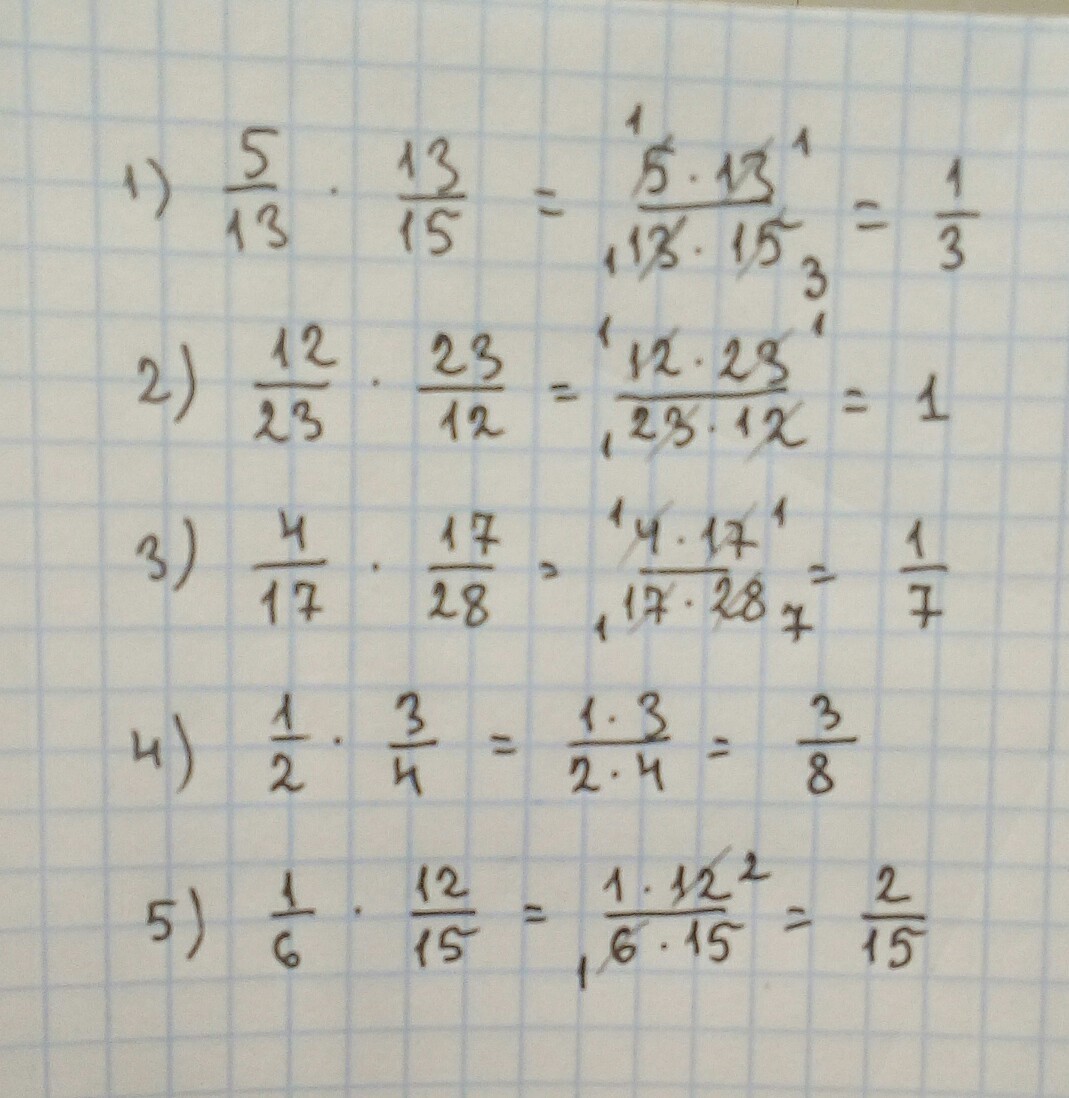 1) 5/13 · 13/15 = 5 · 13/13 · 15 = 1/3
2) 12/23 · 23/12 = 12 · 23/23 · 12 = 1
3) 4/17 · 17/28 = 4 · 17/17 · 28 = 1/7
4) 1/2 · 3/4 = 1 · 3/2 · 4 = 3/8
5) 1/6 · 12/15 = 1 · 12/6 · 15 = 2/15